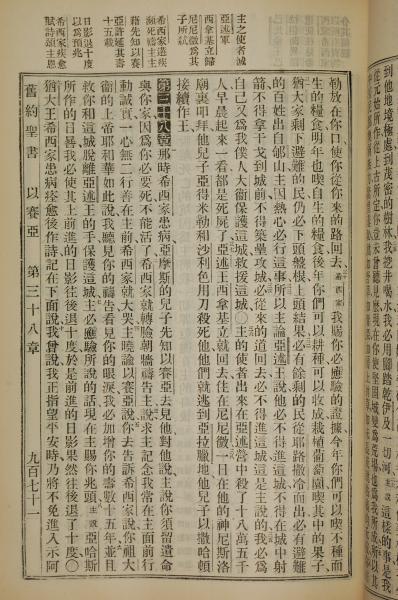 到他地境極處到茂密的樹林我掘井喝水我必用腳踏乾伊及一切河主說這樣的事是我
主之使者滅亞述軍
西拿基立歸尼尼微為其子所弒
希西家遘疾瀕死禱主主藉先知以賽亞許延其壽十五載
日影退十度以為預兆
希西家疾愈賦詩頌主恩
勒放在你口使你從你來的路回去。希西家我賜你必應驗的證據今年你們可以喫不種而
生的糧食明年也喫自生的糧食後年你們可以耕種可以收成栽植葡萄園喫其中的果子
猶大家剩下避難的民仍必下頭盤根上頭結果必有餘剩的民從耶路撒冷而出必有避難
的百姓出自郇山主因熱心必行這事所以主論亞述王說他必不得進這城不得在城中射
箭不得拿干戈到城前不得築壘攻城必從來的道回去必不得進這城這是主說的我必為
自己又為我僕人大衛保護這城救援這城○主的使者出來在亞述營中殺了十八萬五千
人早晨起來一看都是死屍了亞述王西拿基立就回去住在尼尼微一日在他的神尼斯洛
廟裏叩拜他兒子亞得米勒和沙利色用刀殺死他他們就逃到亞拉臘地他兒子以撒哈頓
接續作王
第三十八章那時希西家患病亞摩斯的兒子先知以賽亞去見他對他說主說你須留遺命
與你家因為你必要死不能活了希西家就轉臉朝牆禱告主說求主記念我常在主面前行
動誠實一心無二行善在主前希西家就大哭主曉諭以賽亞說你去告訴希西家說你祖大
衛的上帝耶和華如此說我聽見你的禱告看見你的眼淚我必加增你的壽數十五年並且
救你和這城脫離亞述王的手保護這城主必應驗所說的話現在主賜你兆頭主說亞哈斯
所作的日晷我必使其上前進的日影往後退十度於是前進的日影果然往後退了十度○
猶大王希西家患病痊愈後作詩記在下面說我曾說我正指望平安時乃將不免進入示阿
舊約聖書 以賽亞 第三十八章 九百七十一